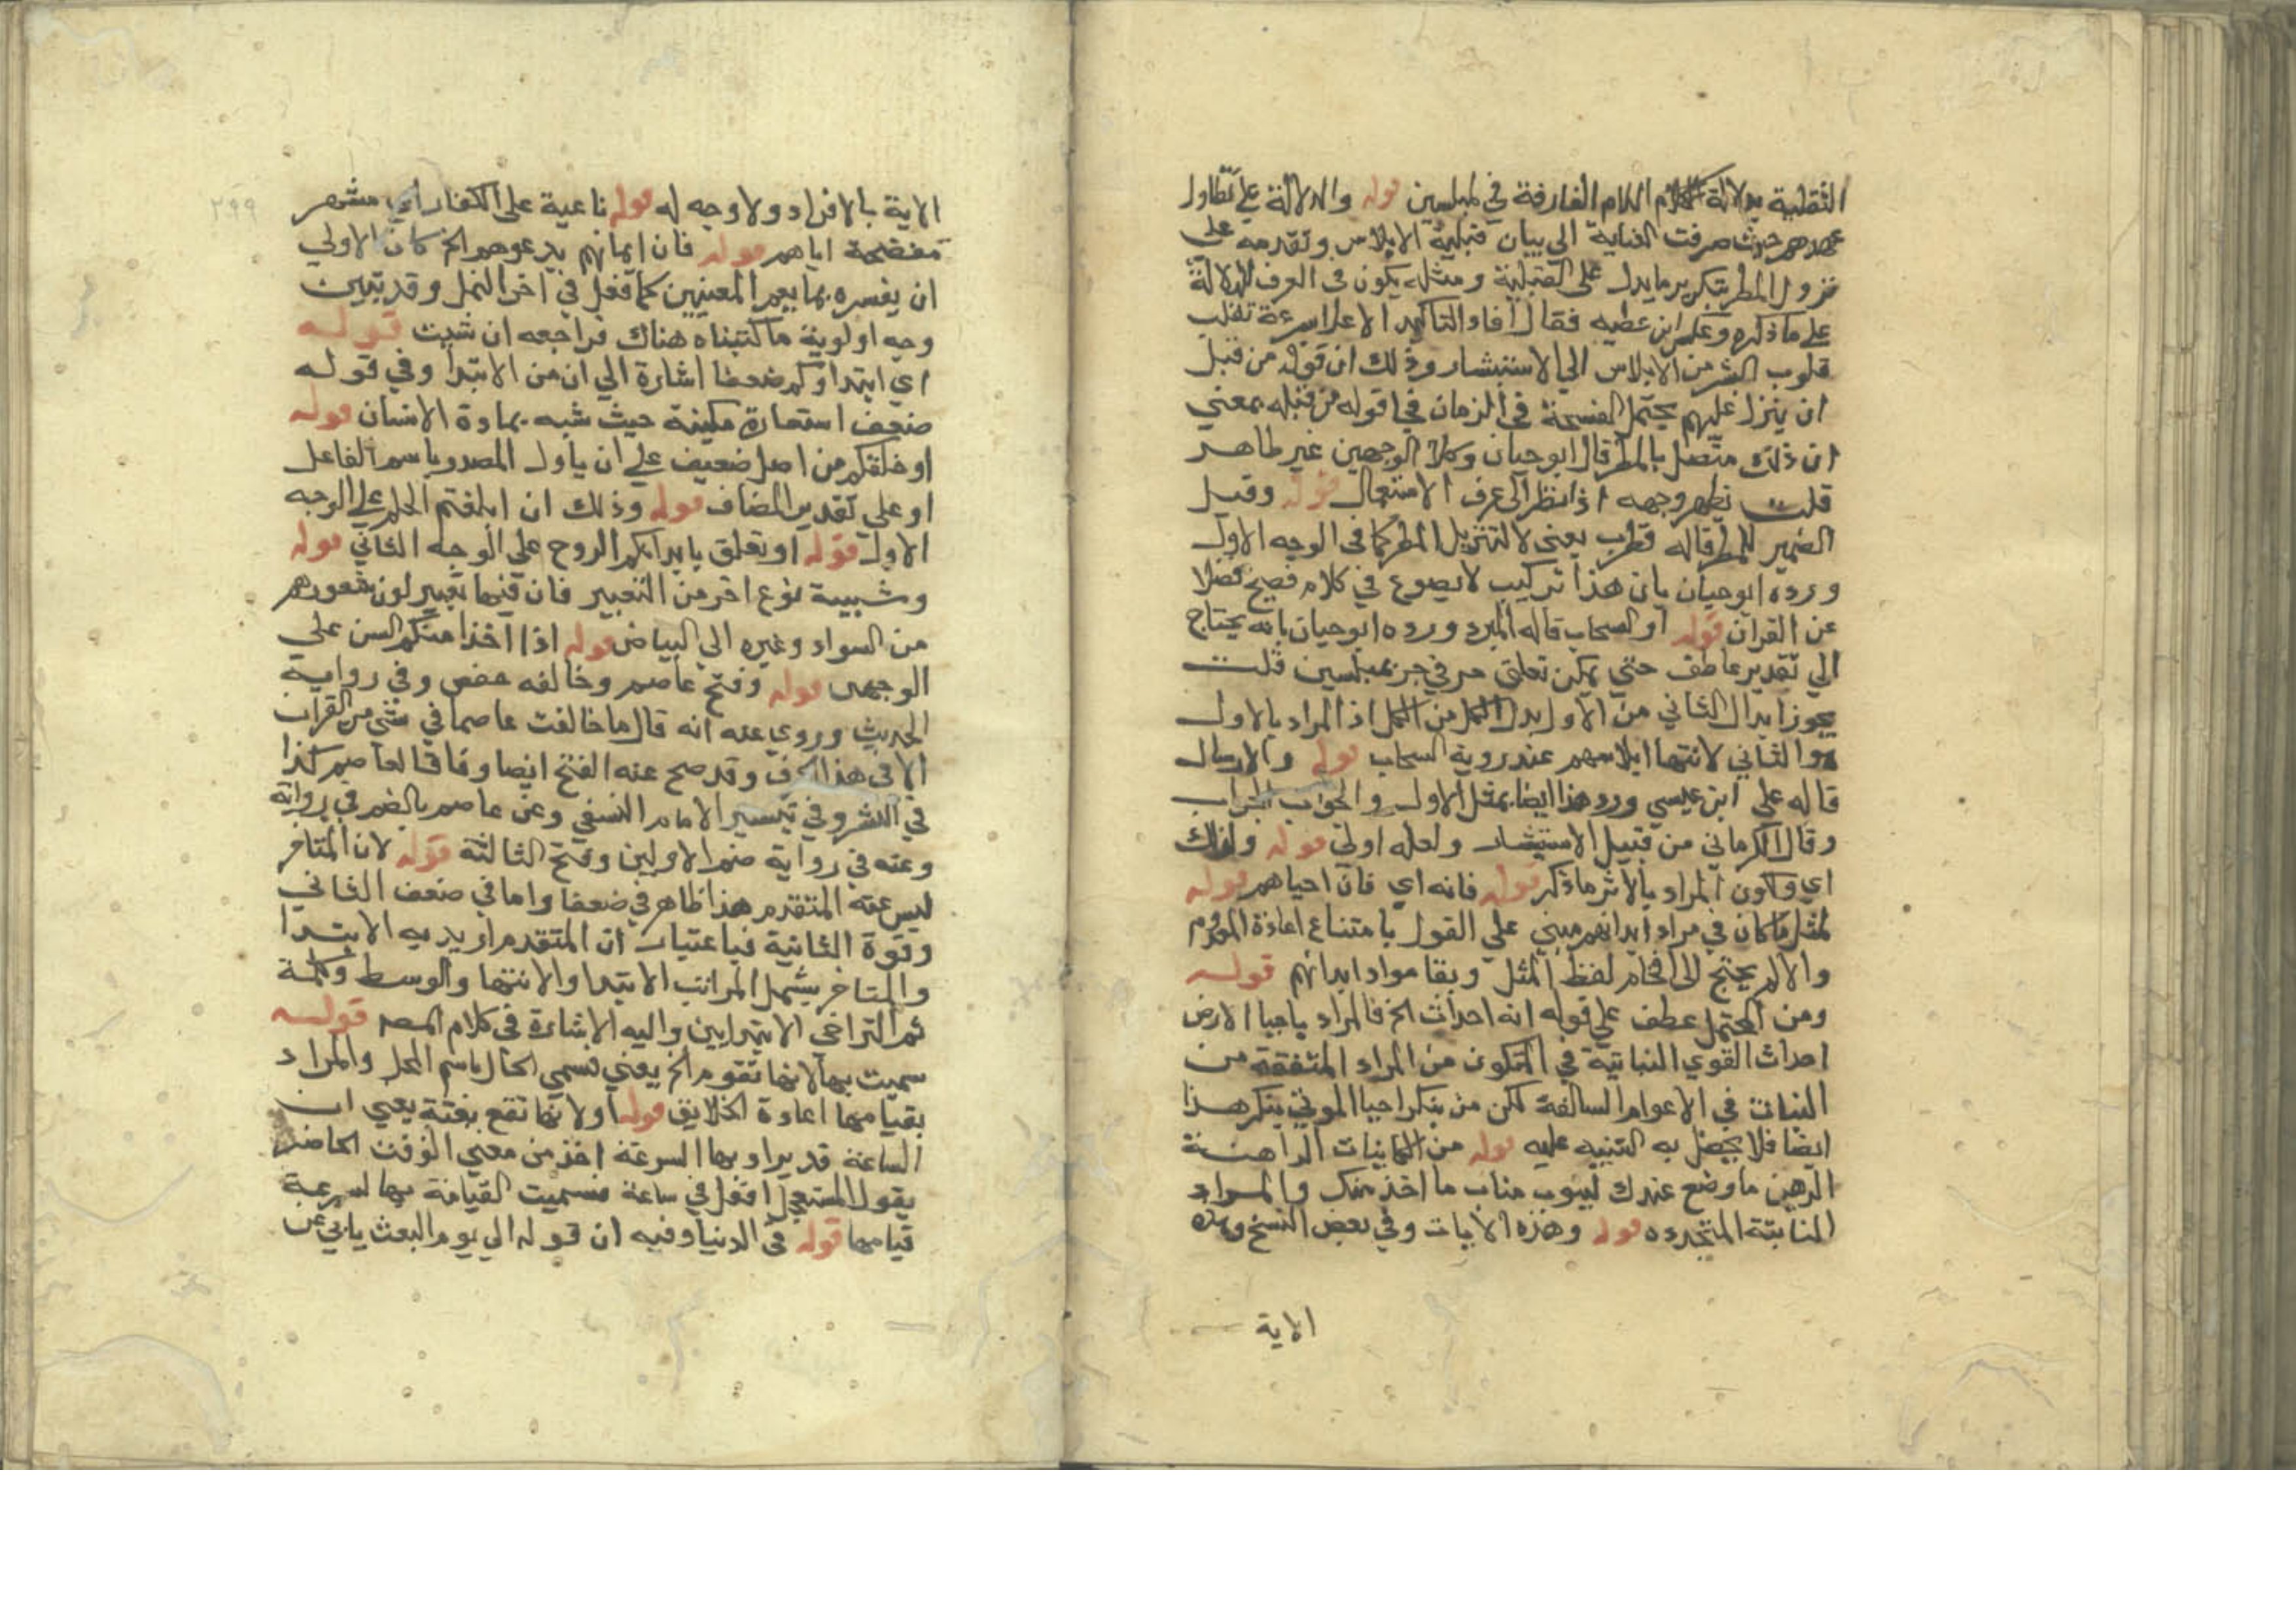 الثقلية بدلالة الكلام اللام الفارقة في لمبلسين قوله والدلالة على تطاول
عهدهم حيث صرفت العناية الى بيان قبلية الابلاس وتقدمه على
نزول المطر بتكرير ما يدل على القبلية ومثله يكون فى العرف للدلالة
على ما ذكره وعكس ابن عطيه فقال افاد التاكيد الاعلا بسرعة تقلب
قلوب البشر من الابلاس الي الاستبشار وذلك ان قوله من قبل
ان ينزل عليهم يحتمل الفسحة في الزمان فجا قوله من قبله بمعني
ان ذلك متصل بالمطر قال ابو حيان وكلا الوجهين غير ظاهر
قلت يظهر وجهه اذا نظر الى عرف الاستعمال قوله وقيل
الضمير للمطر قاله قطرب يعنى لا لتنزيل المطر كما فى الوجه الاول
ورده ابو حيان بان هذا تركيب لا يصوع في كلام فصيح فضلا
عن القران قوله او السحاب قاله المبرد ورده ابو حيان بانه يحتاج
الي تقدير عاطف حتي يمكن تعلق حرفي جر بمبلسين قلت
يجوز ابدال الثاني من الاول بدل الكل من الكل اذ المراد بالاول
والثاني لانتها ابلاسهم عند روية السحاب قوله والارسال
قاله علي ابن عيسي ورد هذا ايضا بمثل الاول والجواب الجواب
وقال الكرماني من قبيل الاستبشار ولعله اولى قوله ولذلك
اي ولكون المراد بالاثر ما ذكر قوله فانه اي فان احياهم قوله
لمثل ما كان في مراد ابدانهم مبني علي القول بامتناع اعادة المعدوم
والا لم يحتج الى اقحام لفظ المثل وبقا مواد ابدانهم قوله
ومن المحتمل عطف علي قوله انه احداث الخ فالمراد باحيا الارض
احداث القوي النباتية في المتكون من المراد المتفقة من
النبات في الاعوام السالفة لكن من ينكر احيا الموتي ينكر هذا
ايضا فلا يحصل به التنبيه عليه قوله من الكاينات الراهنة
الرهين ما وضع عندك لينوب مناب ما اخذ منك والمراد
النابتة المتجدده قوله وهذه الايات وفي بعض النسخ وهذه
الاية
٢٩٩
الاية بالافراد ولا وجه له قوله ناعية على الكفار اي مشهر
مفضحة اياهم قوله فان ايمانهم يدعوهم الخ كان الاولي
ان يفسره بما يعم المعنيين كما فعل في اخر النمل وقد تبين
وجه اولوية ما كتبناه هناك فراجعه ان شيت قوله
اي ابتداوكم ضعفا اشارة الي ان من الابتدا وفي قوله
ضعف استعارة مكينة حيث شبه بمادة الانسان قوله
او خلقكم من اصل ضعيف علي ان ياول المصدر باسم الفاعل
او علي تقدير المضاف قوله وذلك ان ابلغتم الحلم علي الوجه
الاول قوله او تعلق بابدانكم الروح علي الوجه الثاني قوله
وشيبة نوع اخر من التغيير فان فيها تغيير لون شعورهم
من السواد وغيره الي البياض قوله اذا اخذا منكم السن علي
الوجهى قوله وفتح عاصم وخالفه حفص وفي رواية
الحديث وروي عنه انه قال ما خالفت عاصما في شي من القران
الا فى هذا الحرف وقد صح عنه الفتح ايضا وفاقا لعاصم كذا
في النشر وفي تيسير الامام النسفي وعن عاصم بالضم في رواية
وعنه في رواية ضم الاولين وفتح الثالثة قوله لان المتاخر
ليس عنه المتقدم هذا ظاهر في ضعفا واما في ضعف الثاني
وقوة الثانية فباعتبار ان المتقدم اريد به الابتدا
والمتاخر يشمل المراتب الابتدا والانتها والوسط وكلمة
ثم التراخى الابتدايين واليه الاشارة فى كلام المصـ قوله
سميت بها لانها تقوم الخ يعني فسمي الحال باسم المحل والمراد
بقيامها اعادة الخلايق قوله او لانها تقع بغتة يعني ان
الساعة قد يراد بها السرعة اخذ من معني الوقت الحاضر
يقول المستعجل افعل في ساعة فسميت القيامة بها لسرعة
قيامها قوله فى الدنيا وفيه ان قوله الي يوم البعث يابي عن